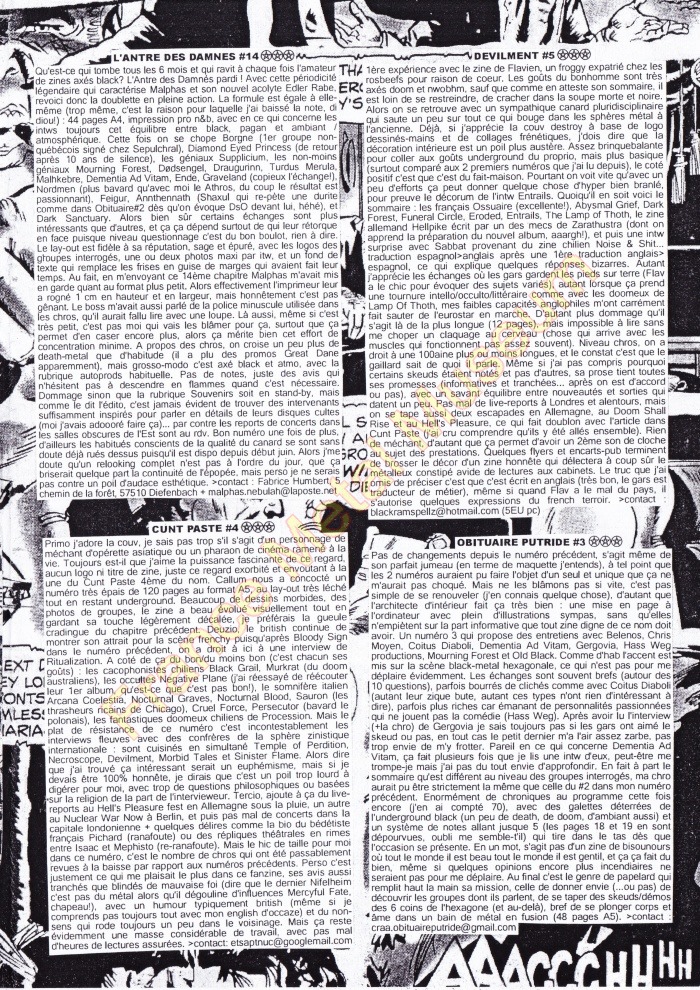 L'ANTRE DES DAMNES #14
Qu'est-ce qui tombe tous les 6 mois et qui ravit à chaque fois l'amateur
de zines axés black? L'Antre des Damnés pardi ! Avec cette périodicité
légendaire qui caractérise Malphas et son nouvel acolyte Edler Rabe,
revoici donc la doublette en pleine action. La formule est égale à elle-
même (trop même, c'est la raison pour laquelle j'ai baissé la note, di
diou!) : 44 pages A4, impression pro n&b, avec en ce qui concerne les
intws toujours cet équilibre entre black, pagan et ambiant /
atmosphérique. Cette fois on se chope Borgne (1er groupe non-
québécois signé chez Sepulchral), Diamond Eyed Princess (de retour
après 10 ans de silence), les géniaux Supplicium, les non-moins
géniaux Mourning Forest, Dødsengel, Draugurinn, Turdus Merula,
Malhkebre, Dementia Ad Vitam, Ende, Graveland (copieux l'échange!),
Nordmen (plus bavard qu'avec moi le Athros, du coup le résultat est
passionnant), Feigur, Annthennath (Shaxul qui re-pète une durite
comme dans Obituaire#2 dès qu'on évoque DsO devant lui, héhé), et
Dark Sanctuary. Alors bien sûr certains échanges sont plus
intéressants que d'autres, et ça ça dépend surtout de qui leur rétorque
en face puisque niveau questionnage c'est du bon boulot, rien à dire.
Le lay-out est fidèle à sa réputation, sage et épuré, avec les logos des
groupes interrogés, une ou deux photos maxi par itw, et un fond de
texte qui remplace les frises en guise de marges qui avaient fait leur
temps. Au fait, en m'envoyant ce 14ème chapitre Malphas m'avait mis
en garde quant au format plus petit. Alors effectivement l'imprimeur leur
a rogné 1 cm en hauteur et en largeur, mais honnêtement c'est pas
gênant. Le boss m'avait aussi parlé de la police minuscule utilisée dans
les chros, qu'il aurait fallu lire avec une loupe. Là aussi, même si c'est
très petit, c'est pas moi qui vais les blâmer pour ça, surtout que ça
permet d'en caser encore plus, alors ça mérite bien cet effort de
concentration minime. A propos des chros, on croise un peu plus de
death-metal que d'habitude (il a plu des promos Great Dane
apparemment), mais grosso-modo c'est axé black et atmo, avec la
rubrique autoprods habituelle. Pas de notes, juste des avis qui
n'hésitent pas à descendre en flammes quand c'est nécessaire.
Dommage sinon que la rubrique Souvenirs soit en stand-by, mais
comme le dit l'édito, c'est jamais évident de trouver des intervenants
suffisamment inspirés pour parler en détails de leurs disques cultes
(moi j'avais adoooré faire ça)... par contre les reports de concerts dans
les salles obscures de l'Est sont au rdv. Bon numéro une fois de plus,
d'ailleurs les habitués conscients de la qualité du canard se sont sans
doute déjà rués dessus puisqu'il est dispo depuis début juin. Alors j'me
doute qu'un relooking complet n'est pas à l'ordre du jour, que ça
briserait quelque part la continuité de l'épopée, mais perso je ne serais
pas contre un poil d'audace esthétique. >contact : Fabrice Humbert, 5
chemin de la forêt, 57510 Diefenbach + malphas.nebulah@laposte.net
DEVILMENT #5
1ère expérience avec le zine de Flavien, un froggy expatrié chez les
rosbeefs pour raison de coeur. Les goûts du bonhomme sont très
axés doom et nwobhm, sauf que comme en atteste son sommaire, il
est loin de se restreindre, de cracher dans la soupe morte et noire.
Alors on se retrouve avec un sympathique canard pluridisciplinaire
qui saute un peu sur tout ce qui bouge dans les sphères métal à
l'ancienne. Déjà, si j'apprécie la couv destroy à base de logo
dessinés-mains et de collages frénétiques, j'dois dire que la
décoration intérieure est un poil plus austère. Assez brinquebalante
pour coller aux goûts underground du proprio, mais plus basique
(surtout comparé aux 2 premiers numéros que j'ai lu depuis), le coté
positif c'est que c'est du fait-maison. Pourtant on voit vite qu'avec un
peu d'efforts ça peut donner quelque chose d'hyper bien branlé,
pour preuve le décorum de l'intw Entrails. Quoiqu'il en soit voici le
sommaire : les français Ossuaire (excellente!), Abysmal Grief, Dark
Forest, Funeral Circle, Eroded, Entrails, The Lamp of Thoth, le zine
allemand Hellpike écrit par un des mecs de Zarathustra (dont on
apprend la préparation du nouvel album, aaargh!), et puis une intw
surprise avec Sabbat provenant du zine chilien Noise & Shit...
traduction espagnol>anglais après une 1ère traduction anglais>
espagnol, ce qui explique quelques réponses bizarres. Autant
j'apprécie les échanges où les gars gardent les pieds sur terre (Flav
a le chic pour évoquer des sujets variés), autant lorsque ça prend
une tournure intello/occulto/littéraire comme avec les doomeux de
Lamp Of Thoth, mes faibles capacités anglophiles m'ont carrément
fait sauter de l'eurostar en marche. D'autant plus dommage qu'il
s'agit là de la plus longue (12 pages), mais impossible à lire sans
me choper un claquage au cerveau (chose qui arrive avec les
muscles qui fonctionnent pas assez souvent). Niveau chros, on a
droit à une 100aine plus ou moins longues, et le constat c'est que le
gaillard sait de quoi il parle. Même si j'ai pas compris pourquoi
certains skeuds étaient notés et pas d'autres, sa prose tient toutes
ses promesses (informatives et tranchées... après on est d'accord
ou pas), avec un savant équilibre entre nouveautés et sorties qui
datent un peu. Pas mal de live-reports à Londres et alentours, mais
on se tape aussi deux escapades en Allemagne, au Doom Shall
Rise et au Hell's Pleasure, ce qui fait doublon avec l'article dans
Cunt Paste (j'ai cru comprendre qu'ils y été allés ensemble). Rien
de méchant, d'autant que ça permet d'avoir un 2ème son de cloche
au sujet des prestations. Quelques flyers en encarts-pub terminent
de brosser le décor d'un zine honnête qui délectera à coup sûr le
métalleux constipé avide de lectures aux cabinets. Le truc que j'ai
omis de préciser c'est que c'est écrit en anglais (très bon, le gars est
traducteur de métier), même si quand Flav a le mal du pays, il
s'autorise quelques expressions du french terroir. >contact :
blackramspellz@hotmail.com (5EU pc)
CUNT PASTE #4
Primo j'adore la couv, je sais pas trop s'il s'agit d'un personnage de
méchant d'opérette asiatique ou un pharaon de cinoche ramené à la
vie. Toujours est-il que j'aime la puissance fascinante de son regard,
aucun logo ni titre de zine, juste ce regard exorbité et envoutant à la
une du Cunt Paste 4ème du nom. Callum nous a concocté un
numéro très épais de 120 pages au format A5, au lay-out très léché
tout en restant underground. Beaucoup de dessins morbides, des
photos de groupes, le zine a beau évolué visuellement tout en
gardant sa touche légèrement décalée, je préferais la gueule
cradingue du chapitre précédent. Deuzio, le british continue de
montrer son attrait pour la scène frenchy puisqu'après Bloody Sign
dans le numéro précédent, on a droit à ici à une interview de
Ritualization. A coté de ça du bon/du moins bon (c'est chacun ses
goûts) : les cacophonistes chiliens Black Grail, Murkrat (du doom
australiens), les occultes Negative Plane (j'ai réessayé de réécouter
leur 1er album, qu'est-ce que c'est pas bon!), le somnifère italien
Arcana Coelestia, Nocturnal Graves, Nocturnal Blood, Sauron (les
thrasheurs ricains de Chicago), Cruel Force, Persecutor (bavard le
polonais), les fantastiques doomeux chiliens de Procession. Mais le
plat de résistance de ce numéro c'est incontestablement les
interviews fleuves avec des confrères de la sphère zinistique
internationale : sont cuisinés en simultané Temple of Perdition,
Necroscope, Devilment, Morbid Tales et Sinister Flame. Alors dire
que j'ai trouvé ça intéressant serait un euphémisme, mais si je
devais être 100% honnête, je dirais que c'est un poil trop lourd à
digérer pour moi, avec trop de questions philosophiques ou basées
sur la religion de la part de l'intervieweur. Tercio, ajoute à ça du live-
reports au Hell's Pleasure fest en Allemagne sous la pluie, un autre
au Nuclear War Now à Berlin, et puis pas mal de concerts dans la
capitale londonienne + quelques délires comme la bio du bédétiste
français Pichard (ranafoute) ou des répliques théâtrales en rimes
entre Isaac et Mephisto (re-ranafoute). Mais le hic de taille pour moi
dans ce numéro, c'est le nombre de chros qui ont été passablement
revues à la baisse par rapport aux numéros précédents. Perso c'est
justement ce qui me plaisait le plus dans ce fanzine, ses avis aussi
tranchés que blindés de mauvaise foi (dire que le dernier Nifelheim
c'est pas du métal alors qu'il dégouline d'influences Mercyful Fate,
chapeau!), avec un humour typiquement british (même si je
comprends pas toujours tout avec mon english d'occaze) et du non-
sens qui rode toujours un peu dans le voisinage. Mais ça reste
évidemment une masse considérable de travail, avec pas mal
d'heures de lectures assurées. >contact: etsaptnuc@googlemail.com
OBITUAIRE PUTRIDE #3
Pas de changements depuis le numéro précédent, s'agit même de
son parfait jumeau (en terme de maquette j'entends), à tel point que
les 2 numéros auraient pu faire l'objet d'un seul et unique que ça ne
m'aurait pas choqué. Mais ne les blâmons pas si vite, c'est pas
simple de se renouveler (j'en connais quelque chose), d'autant que
l'architecte d'intérieur fait ça très bien : une mise en page à
l'ordinateur avec plein d'illustrations sympas, sans qu'elles
n'empiètent sur la part informative que tout zine digne de ce nom doit
avoir. Un numéro 3 qui propose des entretiens avec Belenos, Chris
Moyen, Coitus Diaboli, Dementia Ad Vitam, Gergovia, Hass Weg
productions, Mourning Forest et Old Black. Comme d'hab l'accent est
mis sur la scène black-metal hexagonale, ce qui n'est pas pour me
déplaire évidemment. Les échanges sont souvent brefs (autour des
10 questions), parfois bourrés de clichés comme avec Coitus Diaboli
(autant leur zique bute, autant ces types n'ont rien d'intéressant à
dire), parfois plus riches car émanant de personnalités passionnées
qui ne jouent pas la comédie (Hass Weg). Après avoir lu l'interview
(+la chro) de Gergovia je sais toujours pas si les gars ont aimé le
skeud ou pas, en tout cas le petit dernier m'a l'air assez zarbe, pas
trop envie de m'y frotter. Pareil en ce qui concerne Dementia Ad
Vitam, ça fait plusieurs fois que je lis une intw d'eux, peut-être me
trompe-je mais j'ai pas du tout envie d'approfondir. En fait à part le
sommaire qu'est différent au niveau des groupes interrogés, ma chro
aurait pu être strictement la même que celle du #2 dans mon numéro
précédent. Enormément de chroniques au programme cette fois
encore (j'en ai compté 70), avec des galettes déterrées de
l'underground black (un peu de death, de doom, d'ambiant aussi) et
un système de notes allant jusque 5 (les pages 18 et 19 en sont
dépourvues, oubli me semble-t'il) qui tire dans le tas dès que
l'occasion se présente. En un mot, s'agit pas d'un zine de bisounours
où tout le monde il est beau tout le monde il est gentil, et ça ça fait du
bien, même si quelques opinions encore plus incendiaires ne
seraient pas pour me déplaire. Au final c'est le genre de papelard qui
remplit haut la main sa mission, celle de donner envie (...ou pas) de
découvrir les groupes dont ils parlent, de se taper des skeuds/démos
des 6 coins de l'hexagone (et au-delà), bref de se plonger corps et
âme dans un bain de métal en fusion (48 pages A5). >contact :
craa.obituaireputride@gmail.com
AAACCCHHHH